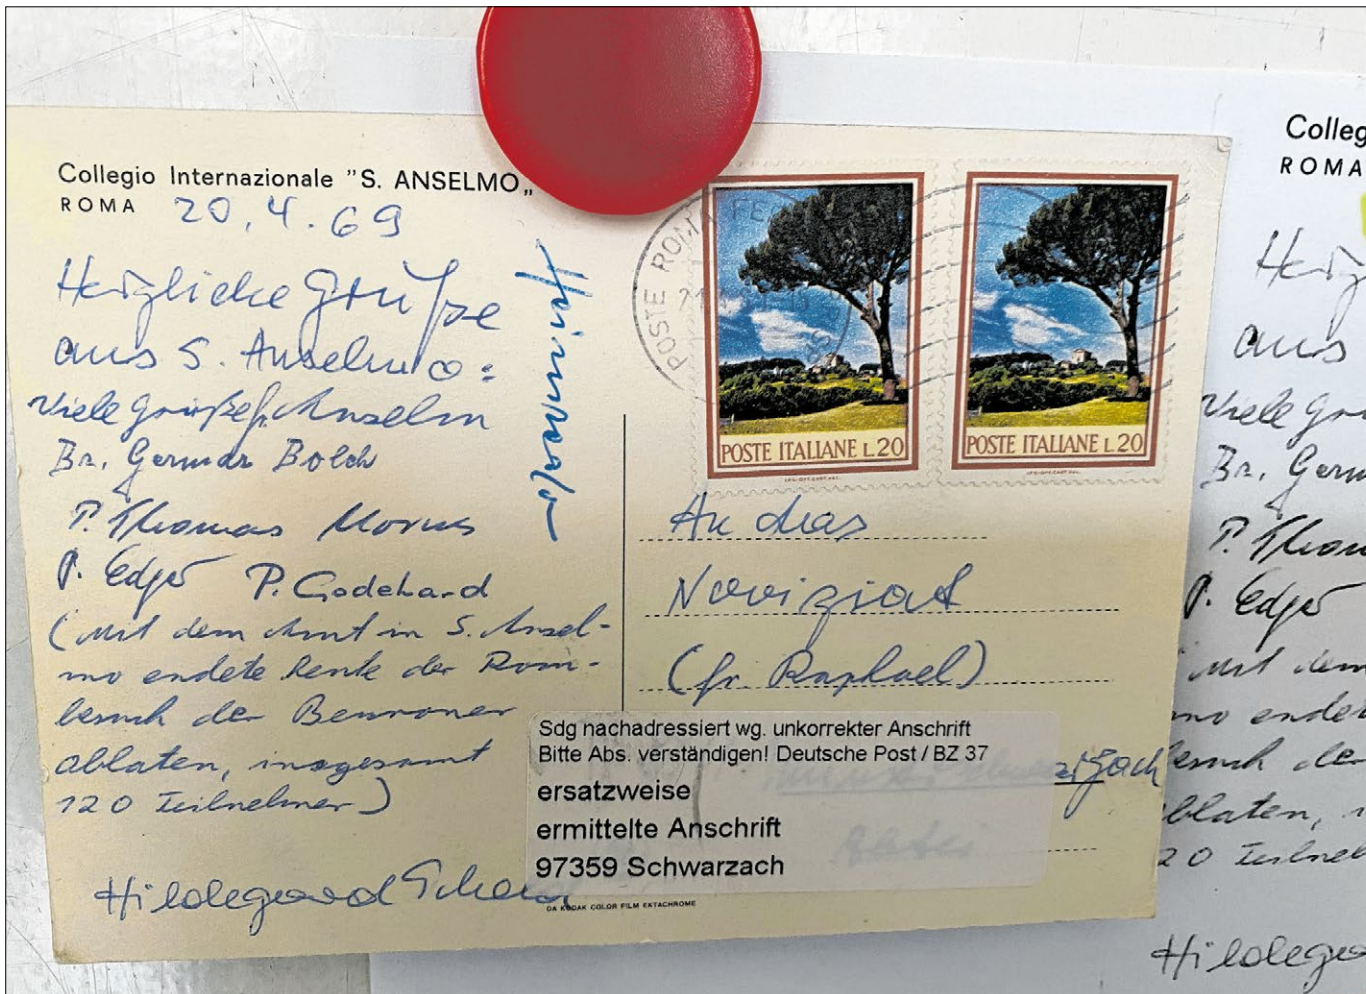 Collegio Internazionale "S. ANSELMO„
ROMA 20.4.69
Herzliche Grüße
aus S. Anselmo:
viele Grüße P. Anselm
Br. Germar Bolch
P. Thomas Morus
P. Edgar P. Godehard
(mit dem Amt in S. Ansel-
mo endete heute der Rom-
besuch der Beuroner
oblaten, insgesamt
120 Teilnehmer)
Hildegard
POSTE ROMA
POSTE ITALIANE L.20
POSTE ITALIANE L.20
An das
Noviziat
(fr. Raphael)
Sdg nachadressiert wg. unkorrekter Anschrift
Bitte Abs. verständigen! Deutsche Post / BZ 37
ersatzweise
ermittelte Anschrift
97359 Schwarzach
DA KODAK COLOR FILM EKTACHROME
Colleg
ROMA
Herz
aus
viele Grü
Br. Germ
P. Thom
P. Edgar
mit dem
mo endet
besuch der
oblaten, i
120 Teilneh
Hildega